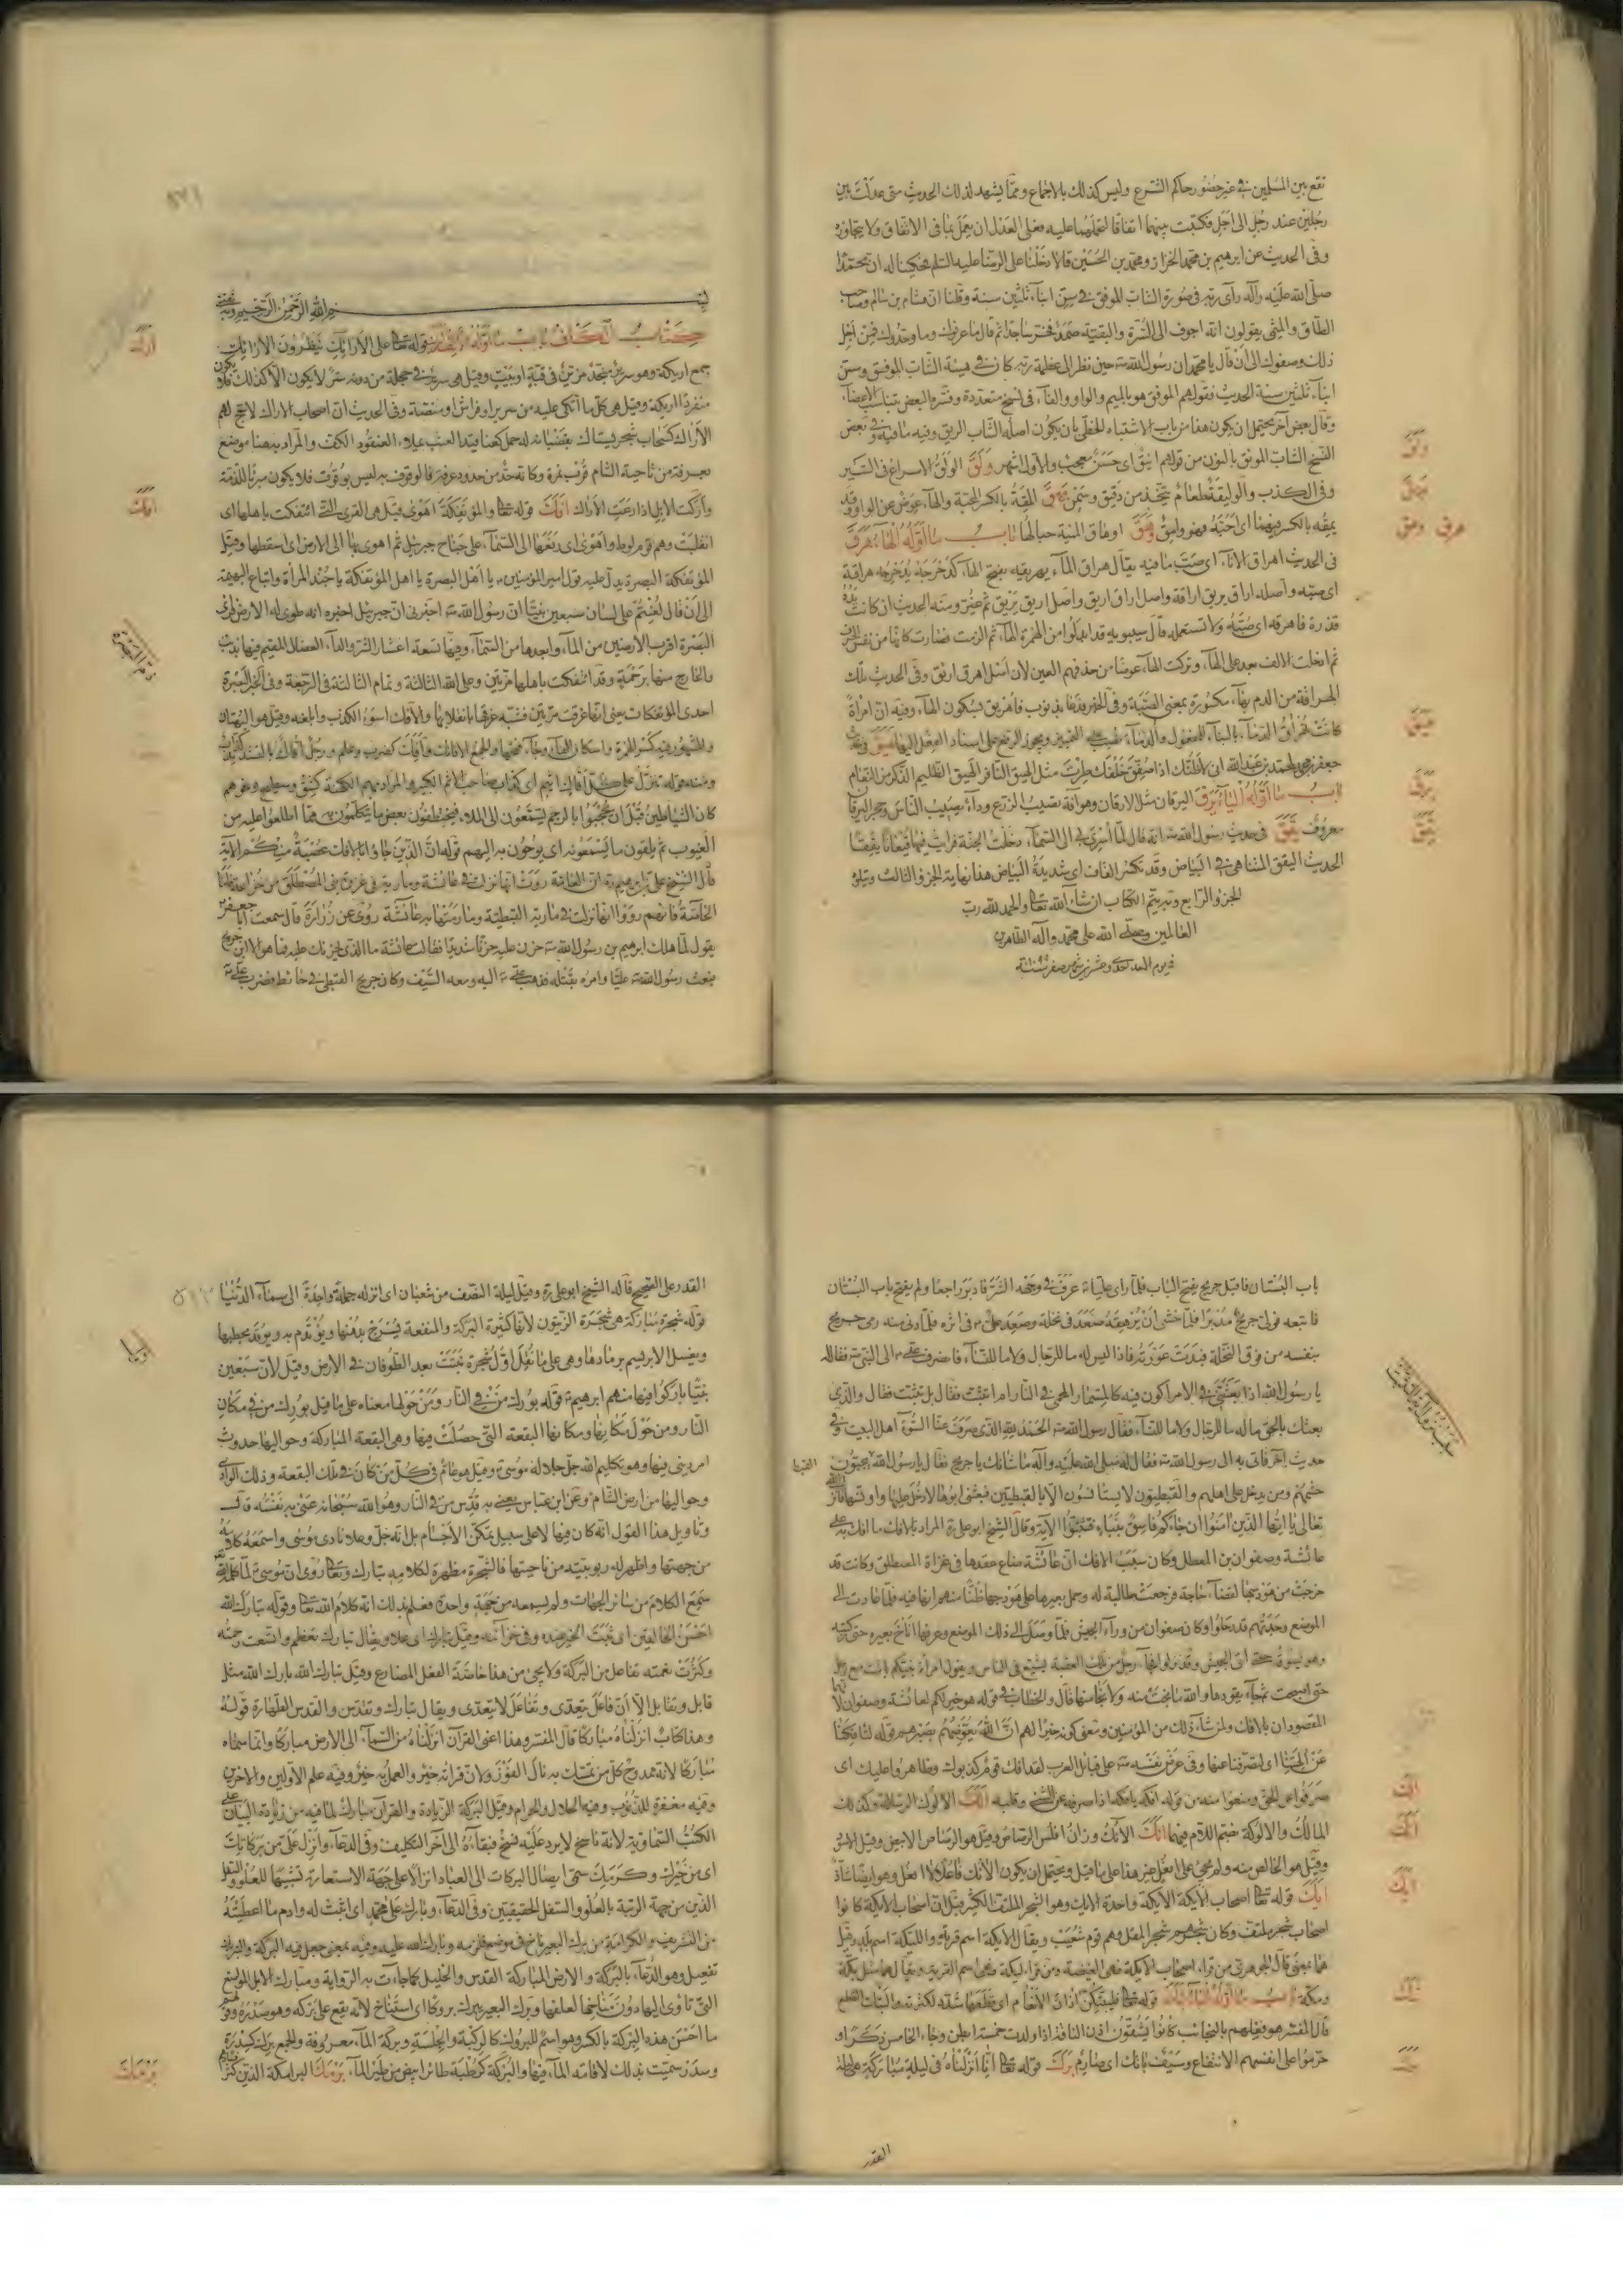 نقع بين المسلمين في غير حضور حاكم الشرع وليس كذلك بالاجماع ومما يشهد لذلك الحديث متى عدلت بين
رجلين عند رجل الى اجل فكتبت بينهما اتفاقا لتحملهما عليه فعلى العدل ان يعمل بما في الاتفاق ولا يتجاوزه
وفي الحديث عن ابرهيم بن محمد الخزاز ومحمد بن الحسين قالا دخلنا على الرضا عليه السلم فحكينا له ان محمدا
صلى الله عليه وآله رأى ربه في صورة الشاب الموفق في سن ابناء ثلثين سنة وقلنا ان هشام بن سالم وصاحب
الطاق والميثمي يقولون انه اجوف الى السرة والبقية صمد فخر ساجدا ثم قال ما عرفوك وما وحدوك فمن اجل
ذلك وصفوك الى ان قال يا محمد ان رسول الله حين نظر الى عظمة ربه كان في هيئة الشاب الموفق وسن
ابناء ثلثين سنة الحديث فقولهم الموفق هو بالميم والواو والفاء في نسخ متعددة وفسره البعض بتناسب الاعضاء
وقال بعض آخر يحتمل ان يكون هذا من باب الاشتباه الخطي بان يكون اصله الشاب الريق وفيه ما فيه وفي بعض
النسخ الشاب المونق بالنون من قولهم انيق اى حسن معجب والاول اشهر ولق الولق الاسراع في السير
وفي الكذب والوليقة طعام يتخذ من دقيق وسمن ومق المقة بالكسر المحبة والهاء عوض عن الواو وقد
يمقه بالكسر فيهما اى احبه فهو وامق وهق اوهاق المنية حبالها باب ما اوله الهاء هرق
في الحديث اهراق الاناء اى صب ما فيه يقال هراق الماء يهريقه بفتح الهاء كدحرجه يدحرجه هراقة
اى صبه واصله اراق يريق اراقة واصل اراق اريق واصل يريق
قذرة فاهرقه اى صبه ولا تستعمله قال سيبويه قد ابدلوا من الهمزة الهاء ثم الزمت فصارت كانها من نفس الحرف
ثم ادخلت الالف بعد على الهاء وتركت الهاء عوضا من حذفهم العين لان اصل اهرق اريق وفي الحديث تلك
الهراقة من الدم
كانت تهراق الدماء بالبناء للمفعول والدماء نصب على التمييز ويجوز الرفع على اسناد الفعل اليها هيق في
باب ما اوله الياء يرق اليرقان مثل الارقان وهو آفة تصيب الزرع وداء يصيب الناس وحجر اليرقان
معروف يقق في حديث رسول الله انه قال لما اسري بي الى السماء دخلت الجنة فرايت فيها قيعانا يققا
الحديث اليقق المتناهي في البياض وقد تكسر القاف اى شديدة البياض هذا نهاية الجزو الثالث ويتلوه
الجزو الرابع وبه يتم الكتاب ان شاء الله تعالى والحمد لله رب
العالمين وصلى الله على محمد وآله الطاهرين
ولق
ومق
هرق وهق
هيق
يرق
يقق
بسم الله الرحمن الرحيم
كتاب الكاف باب ما اوله الالف ارك قوله تعالى على الارائك ينظرون الارائك
جمع اريكة وهو سرير متخذ مزين في قبة او بيت وقيل هي سرير في حجلة من دونه ستر
منفردا اريكة وقيل هي كل ما اتكى عليه من سرير او فراش او منصة وفي الحديث ان اصحاب الاراك لا حج لهم
الاراك كسحاب شجر يستاك بقضبانه له حمل كعناقيد العنب يملاء العنقود الكف والمراد به هنا موضع
بعرفة من ناحية الشام قرب نمرة وكانه حد من حدود عرفة فالوقوف به ليس بوقوف فلا يكون مبرئا للذمة
واركت الابل اذا رعت الاراك افك قوله تعالى والمؤتفكة اهوى قيل هي القرى التي ائتفكت باهلها اى
انقلبت وهم قوم لوط واهوى اى رفعها الى السماء على جناح جبرئيل ثم اهوى بها الى الارض اى اسقطها وقيل
المؤتفكة البصرة يدل عليه قول امير المؤمنين يا اهل البصرة يا اهل المؤتفكة يا جند المرأة واتباع البهيمة
الى ان قال لعنتم على لسان سبعين نبيا ان رسول الله اخبرني ان جبرئيل اخبره انه طوى له الارض فراى
البصرة اقرب الارضين من الماء وابعدها من السماء وفيها تسعة اعشار الشر والداء العضال المقيم فيها بذنب
والخارج منها برحمة وقد ائتفكت باهلها مرتين وعلى الله الثالثة وتمام الثالثة في الرجعة وفي الخبر البصرة
احدى المؤتفكات يعني انها غرقت مرتين فشبه غرقها بانقلابها والافك اسوء الكذب وابلغه وقيل هو البهتان
ومنه قوله تنزل على كل افاك اثيم اى كذاب صاحب الاثم الكبير والمراد بهم الكهنة كشق وسطيح ونحوهم
كان الشياطين قبل ان يحجبوا بالرجم يستمعون الى الملاء فيختطفون بعض ما يتكلمون به مما اطلعوا عليه من
الغيوب ثم يلقون ما يسمعونه اى يوحون به اليهم قوله ان الذين جاؤا بالافك عصبة منكم الآية
قال الشيخ على بن ابرهيم ان العامة روت انها نزلت في عائشة وما رميت به في غزوة بني المصطلق من خزاعة واما
الخاصة فانهم رووا انها نزلت في مارية القبطية وما رمتها به عائشة روى عن زرارة قال سمعت ابا جعفر
يقول لما هلك ابرهيم بن رسول الله حزن عليه حزنا شديدا فقالت عائشة ما الذي يحزنك عليه فما هو الا ابن جريح
فبعث رسول الله عليا وامره بقتله فذهب على اليه ومعه السيف وكان جريح القبطي في حائط فضرب على
ارك
افك
باب البستان فاقبل جريح يفتح الباب فلما راى عليا عرف في وجهه الشر فادبر راجعا ولم يفتح باب البستان
فاتبعه فولى جريح مدبرا فلما خشى ان يرهقه صعد في نخلة وصعد على في اثره فلما دنى منه رمى جريح
بنفسه من فوق النخلة فبدت عورته فاذا ليس له ما للرجال ولا ما للنساء فانصرف على الى النبي فقال له
يا رسول الله اذا بعثتني في الامر اكون فيه كالمسمار المحمى في النار ام اتثبت فقال بل تثبت فقال والذي
بعثك بالحق ما له ما للرجال ولا ما للنساء فقال رسول الله الحمد لله الذي صرف عنا السوء اهل البيت وفي
حديث آخر فاتى به الى رسول الله فقال له صلى الله عليه وآله ما شانك يا جريح فقال يا رسول الله
حشمهم ومن يدخل على اهليهم والقبطيون لا يستانسون الا بالقبطيين فبعثني ابوها لادخل عليها واونسها فانزل الله
تعالى يا ايها الذين آمنوا ان جاءكم فاسق بنباء فتبينوا الآية وقال الشيخ ابو على المراد بالافك ما افك به على
عائشة وصفوان بن المعطل وكان سبب الافك ان عائشة ضاع عقدها في غزاة المصطلق وكانت قد
خرجت من هودجها لقضاء حاجة فرجعت طالبة له وحمل بعيرها على هودجها ظنا منهم انها فيه فلما عادت الى
الموضع وجدتهم قد رحلوا وكان صفوان من وراء الجيش فلما وصل الى ذلك الموضع وعرفها اناخ بعيره حتى ركبته
وهو يسوقه حتى اتى الجيش وقد نزلوا
المقصودان بالافك ولمن ساءه ذلك من المؤمنين ومعنى كونه خيرا لهم ان الله يعوضهم بصبرهم قوله لتافكنا
عن آلهتنا اى لتصرفنا عنها وفي عرض نفسه على قبائل العرب لقد افك قوم كذبوك وظاهروا عليك اى
صرفوا عن الحق ومنعوا منه من قوله افكه يافكه اذا صرفه عن الشئ وقلبه الك الالوك الرسالة وكذلك
المالك والالوكة بضم اللام فيهما انك الانك وزان افلس الرصاص وقيل هو الرصاص الابيض وقيل الاسود
وقيل هو الخالص منه ولم يجئ على افعل غير هذا على ما قيل ويحتمل ان يكون الآنك فاعلا لا افعل وهو ايضا شاذ
ايك قوله تعالى اصحاب الايكة الايكة واحدة الايك وهو الشجر الملتف الكثير قيل ان اصحاب الايكة كانوا
اصحاب شجر ملتف وكان شجرهم شجر المقل وهم قوم شعيب ويقال الايكة اسم قرية والليكة اسم بلد وقيل
هما بمعنى قال الجوهري من قراء اصحاب الايكة فهي الغيضة ومن قراء ليكة فهي اسم القرية ويقال هما مثل بكة
ومكة باب ما اوله الباء بتك قوله تعالى فليبتكن آذان الانعام اى يقطعونها شدد لكثرته والبتك القطع
قال المفسر هو فعلهم بالنجائب كانوا يشقون اذن الناقة اذا ولدت خمسة ابطن وجاء الخامس ذكرا و
حرموا على انفسهم الانتفاع وسيف باتك اى صارم برك قوله تعالى انا انزلناه في ليلة مباركة هي ليلة
الك
انك
ايك
بتك
برك
القدر
القدر على الصحيح قاله الشيخ ابو على وقيل ليلة النصف من شعبان اى انزله جملة واحدة الى سماء الدنيا
قوله شجرة مباركة هي شجرة الزيتون لانها كثيرة البركة والمنفعة فيسرج بدهنها ويؤتدم به ويوقد بحطبها
ويغسل الابريسم برمادها وهي على ما نقل اول شجرة نبتت بعد الطوفان في الارض وقيل لان سبعين
نبيا باركوا فيها منهم ابرهيم قوله بورك من في النار ومن حولها معناه على ما قيل بورك من في مكان
النار ومن حول مكانها ومكانها البقعة التي حصلت فيها وهي البقعة المباركة وحواليها حدوث
امر ديني فيها وهو تكليم الله جل جلاله موسى وقيل هو عام في كل من كان في تلك البقعة وذلك الوادي
وحواليها من ارض الشام وعن ابن عباس يعني به قدس من في النار وهو الله سبحانه عنى به نفسه قال
وتاويل هذا القول انه كان فيها لا على سبيل تمكن الاجسام بل انه جل وعلا نادى موسى واسمعه كلامه
من جهتها واظهر له ربوبيته من ناحيتها فالشجرة مظهرة لكلامه تبارك وتعالى روى ان موسى لما كلمه الله
سمع الكلام من سائر الجهات ولم يسمعه من جهة واحدة فعلم بذلك انه كلام الله تعالى وقوله تبارك الله
احسن الخالقين اى ثبت الخير عنده وفي خزائنه وقيل تبارك اى علا ويقال تبارك تعظم واتسعت رحمته
وكثرت نعمته تفاعل من البركة ولا يجئ من هذا خاصة الفعل المضارع وقيل تبارك الله بارك الله مثل
قاتل وتقاتل الا ان فاعل يتعدى وتفاعل لا يتعدى ويقال تبارك وتقدس والقدس الطهارة قوله
وهذا كتاب انزلناه مبارك قال المفسر وهذا اعنى القرآن انزلناه من السماء الى الارض مبارك وانما سماه
مباركا لانه ممدوح كل من تمسك به نال الفوز ولان قراءته خير والعمل به خير وفيه علم الاولين والآخرين
وفيه مغفرة للذنوب وفيه الحلال والحرام وقيل البركة الزيادة والقرآن مبارك لما فيه من زيادة البيان على
الكتب السماوية لانه ناسخ لا يرد عليه نسخ فبقاءه الى آخر التكليف وفي الدعاء وانزل على من بركاتك
اى من خيرك وكرمك سمى ايصال البركات الى العباد انزالا على جهة الاستعارة تشبيها للعلو والسفل
الذين من جهة الرتبة بالعلو والسفل الحقيقيين وفي الدعاء وبارك على محمد اى اثبت له وادم ما اعطيته
من التشريف والكرامة من برك البعير اناخ في موضع فلزمه وبارك الله عليه وفيه بمعنى جعل فيه البركة والتبريك
تفعيل وهو الدعاء بالبركة والارض المباركة القدس والخليل كما جاءت به الرواية ومبارك الابل الموضع
التي تاوى اليها دون مناخها لعلفها وبرك البعير يبرك بروكا اى استناخ لانه يقع على بركه وهو صدره
ما احسن هذه البركة بالكسر وهو اسم للبروك كالركبة والجلسة وبركة الماء معروفة والجمع برك كسدرة
وسدر سميت بذلك لاقامة الماء فيها والبركة كرطبة طائر ابيض من طير الماء برمك البرامكة الذين
برمك